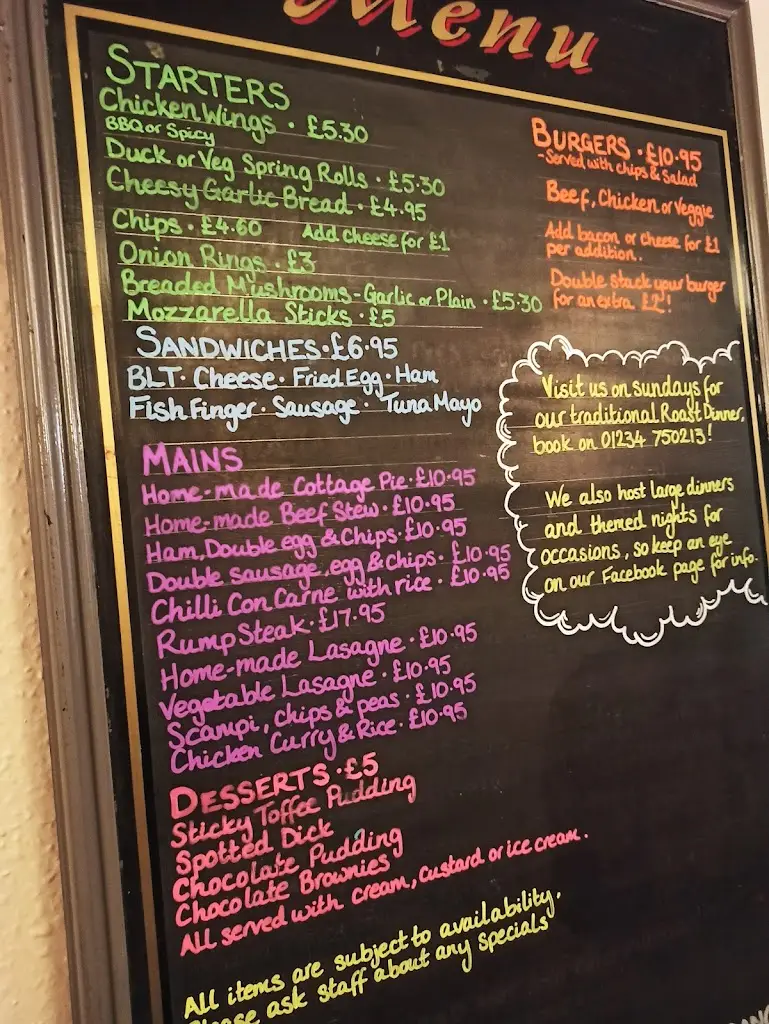 Menu
STARTERS
Chicken Wings · £5.30
BBQ or Spicy
Duck or Veg Spring Rolls · £5.30
Cheesy Garlic Bread · £4.95
Chips · £4.60 Add cheese for £1
Onion Rings · £3
Breaded Mushrooms - Garlic or Plain · £5.30
Mozzarella Sticks · £5
SANDWICHES · £6.95
BLT · Cheese · Fried Egg · Ham
Fish Finger · Sausage · Tuna Mayo
MAINS
Home-made Cottage Pie · £10.95
Home-made Beef Stew · £10.95
Ham, Double egg & Chips · £10.95
Double sausage, egg & chips · £10.95
Chilli Con Carne with rice · £10.95
Rump Steak · £17.95
Home-made Lasagne · £10.95
Vegetable Lasagne · £10.95
Scampi, chips & peas · £10.95
Chicken Curry & Rice · £10.95
DESSERTS · £5
Sticky Toffee Pudding
Spotted Dick
Chocolate Pudding
Chocolate Brownies
All served with cream, custard or ice cream.
All items are subject to availability.
Please ask staff about any specials
BURGERS · £10.95
- Served with chips & Salad
Beef, Chicken or Veggie
Add bacon or cheese for £1
per addition.
Double stack your burger
for an extra £2!
Visit us on sundays for
our traditional Roast Dinner,
book on 01234 750213!
We also host large dinners
and themed nights for
occasions, so keep an eye
on our Facebook page for info.